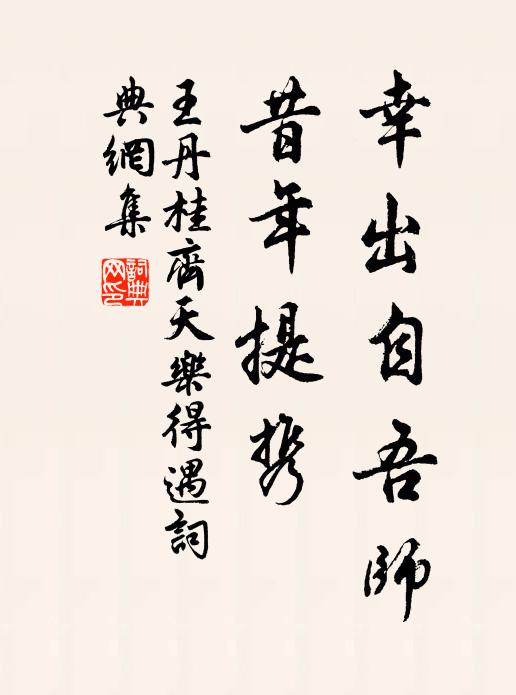 幸出自吾師
昔年提携
王丹桂齊天樂得遇詞
典網集
詞典
网印